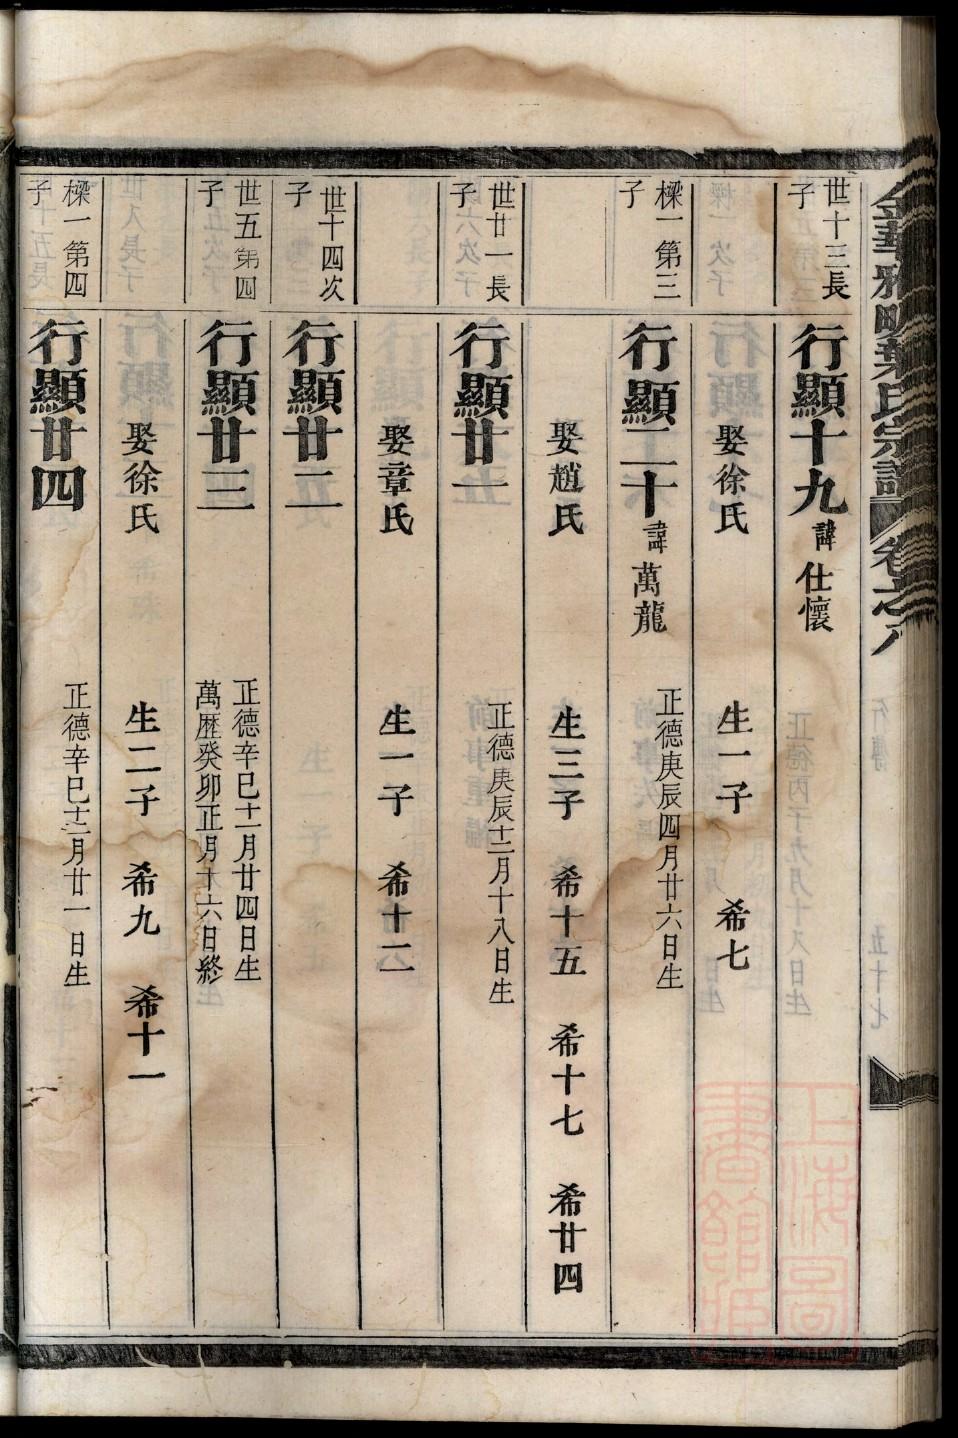 金華雅畈葉氏宗譜 卷之八
世十三長子
行顯十九 諱仕懷
娶徐氏 生一子 希七
樑一第三子
行顯二十 諱萬龍 正德庚辰四月廿六日生
娶趙氏 生三子 希十五 希十七 希廿四
世廿一長子
行顯廿一 正德庚辰十二月十八日生
娶章氏 生一子 希十二
世十四次子
行顯廿二
世五第四子
行顯廿三 正德辛巳十一月廿四日生
萬歷癸卯正月十六日終
娶徐氏 生二子 希九 希十一
樑一第四子
行顯廿四 正德辛巳十二月廿一日生
上海圖
書館藏